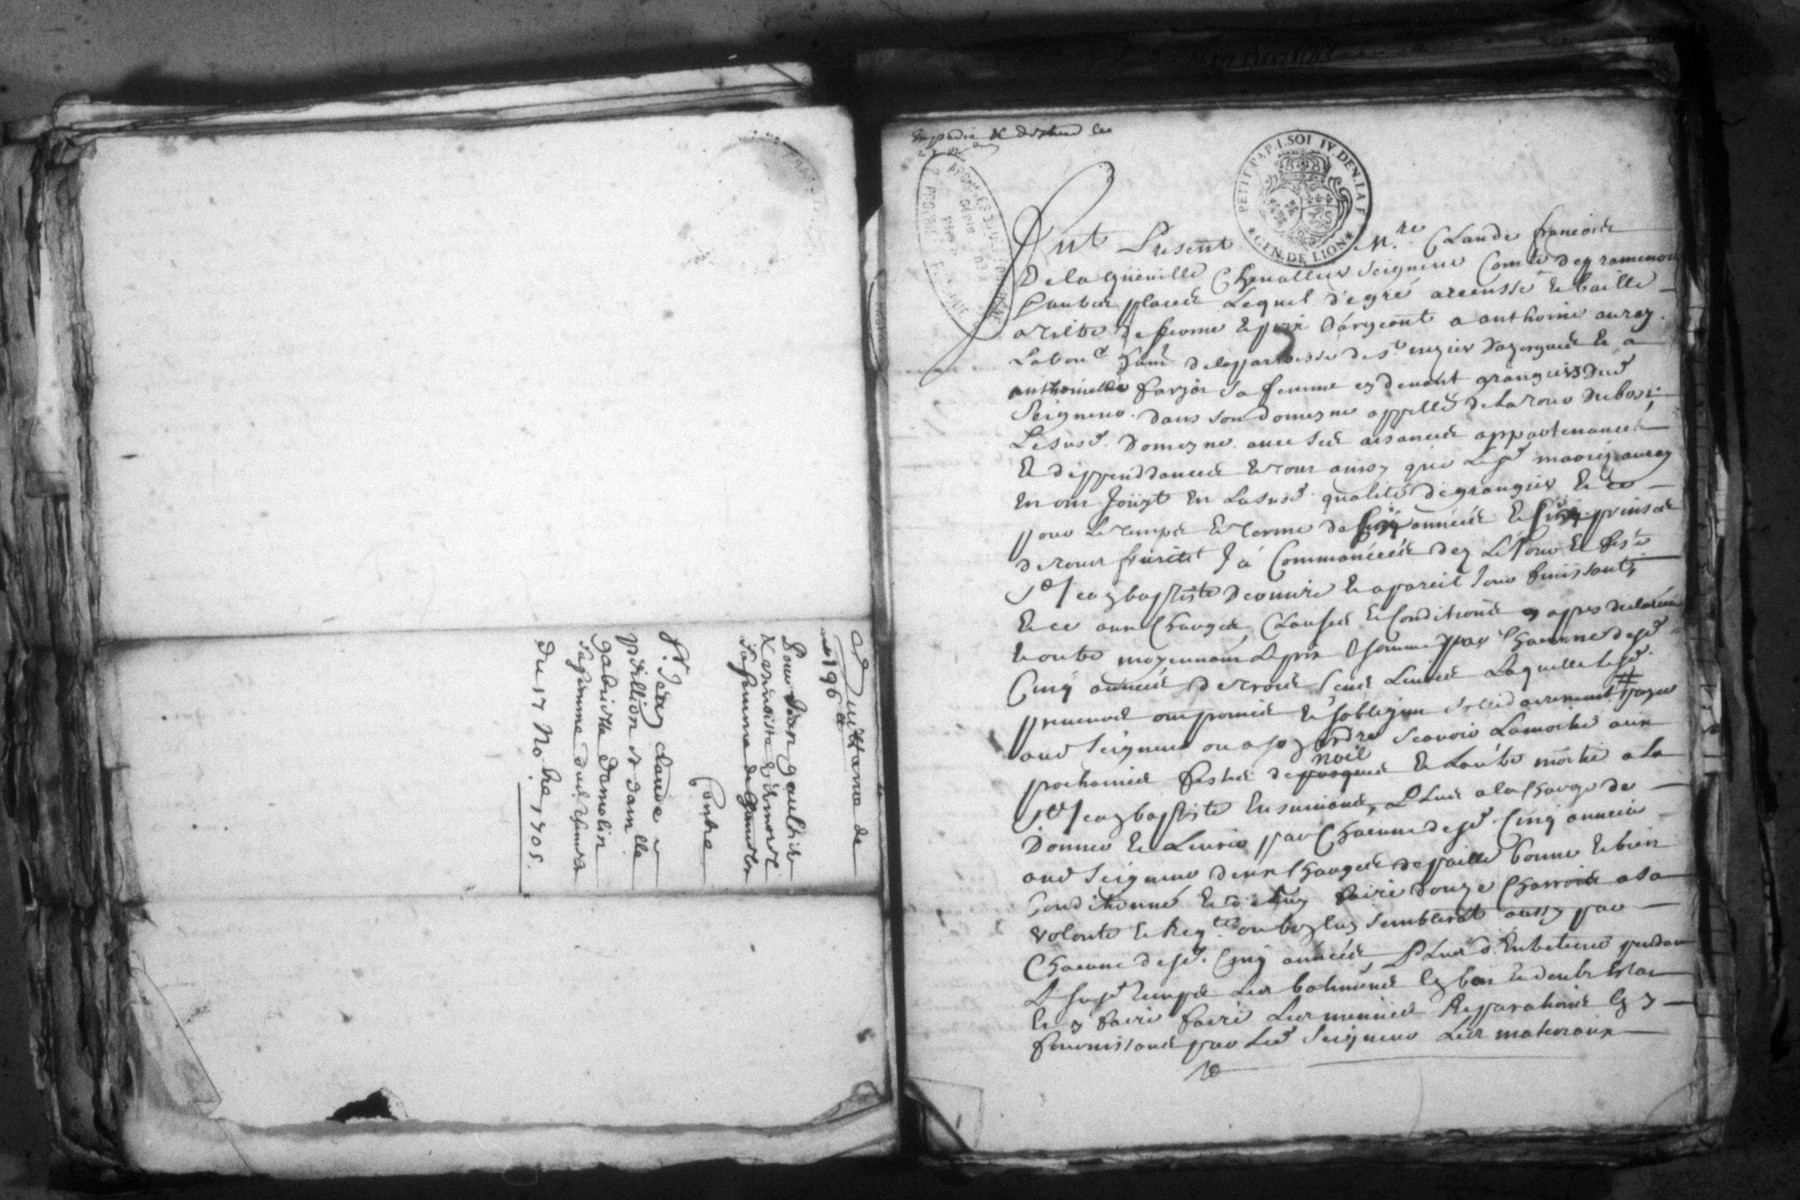 Quittance de
196 #
Pour Jean gaultier
sa femme
Contre
Sr. Jean claude
pidillion et dam.lle
gabrielle Damolin
sa femme
Du 17 No.bre 1705.
PETIT PAP. I. SOL IV. DEN. LA F.
GEN. DE LION
Fut Present M.re Claude francois
De la gueuille Chevallier seigneur Comte
placer Lequel de gré arcenssé et baille
a tiltre de ferme et prix d'argent a anthoine auray
Labou.r de la parroisse de St.
anthoinette farjot sa femme en devant grangers dud.
Seigneur dans son domeyne appellé de la roue du bost
Lesusd. Domeyne avec ses aisances appartenances
et deppendances et tout ainsy que Led. auray
en ont Jouyt en Lasusd. qualité de granger et ce
pour Le temps et terme de cinq années et cinq prinses
de tous fruicts J a Commancées dez Le Jour et feste
St Jean baptiste derniere et a pareil Jour finissants
Et ce aux Charges, Clauses et Conditions cy apres declarées
Et outre moyennant Le prix et somme pour Chacune desd.
Cinq années de trois cens Livres Laquelle Lesd.
preneurs ont promis et s'obligent sollidairement payer
aud Seigneur ou a son ordre scavoir La moitié aux
prochaines festes de noël et L'autre moitié a la
St Jean baptiste Ensuivant, Plus a la Charge de
Donner et Livrer par Chacune desd. Cinq années
aud Seigneur deux Charges de paille bonne et bien
Conditionné et de luy faire douze Charrois a sa
volonté et Req.te ou bon luy semblerat aussy par
Chacune desd. Cinq années, Plus d'Entretenir pendant
Le susd. temps Les batiments
et y faire faire Les menues Reparations
fournissant par Led Seigneur Les materiaux